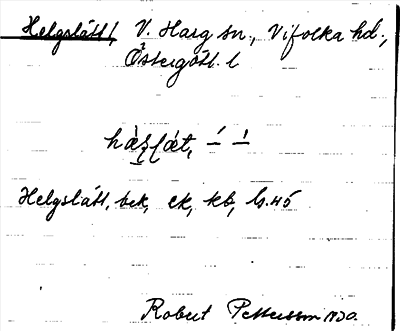 Helgslätt, V. Harg sn., Vifolka hd.,
Östergötl. l
Helgslätt, bek, ek, kb, G.45
Robert Pettersson 1930.